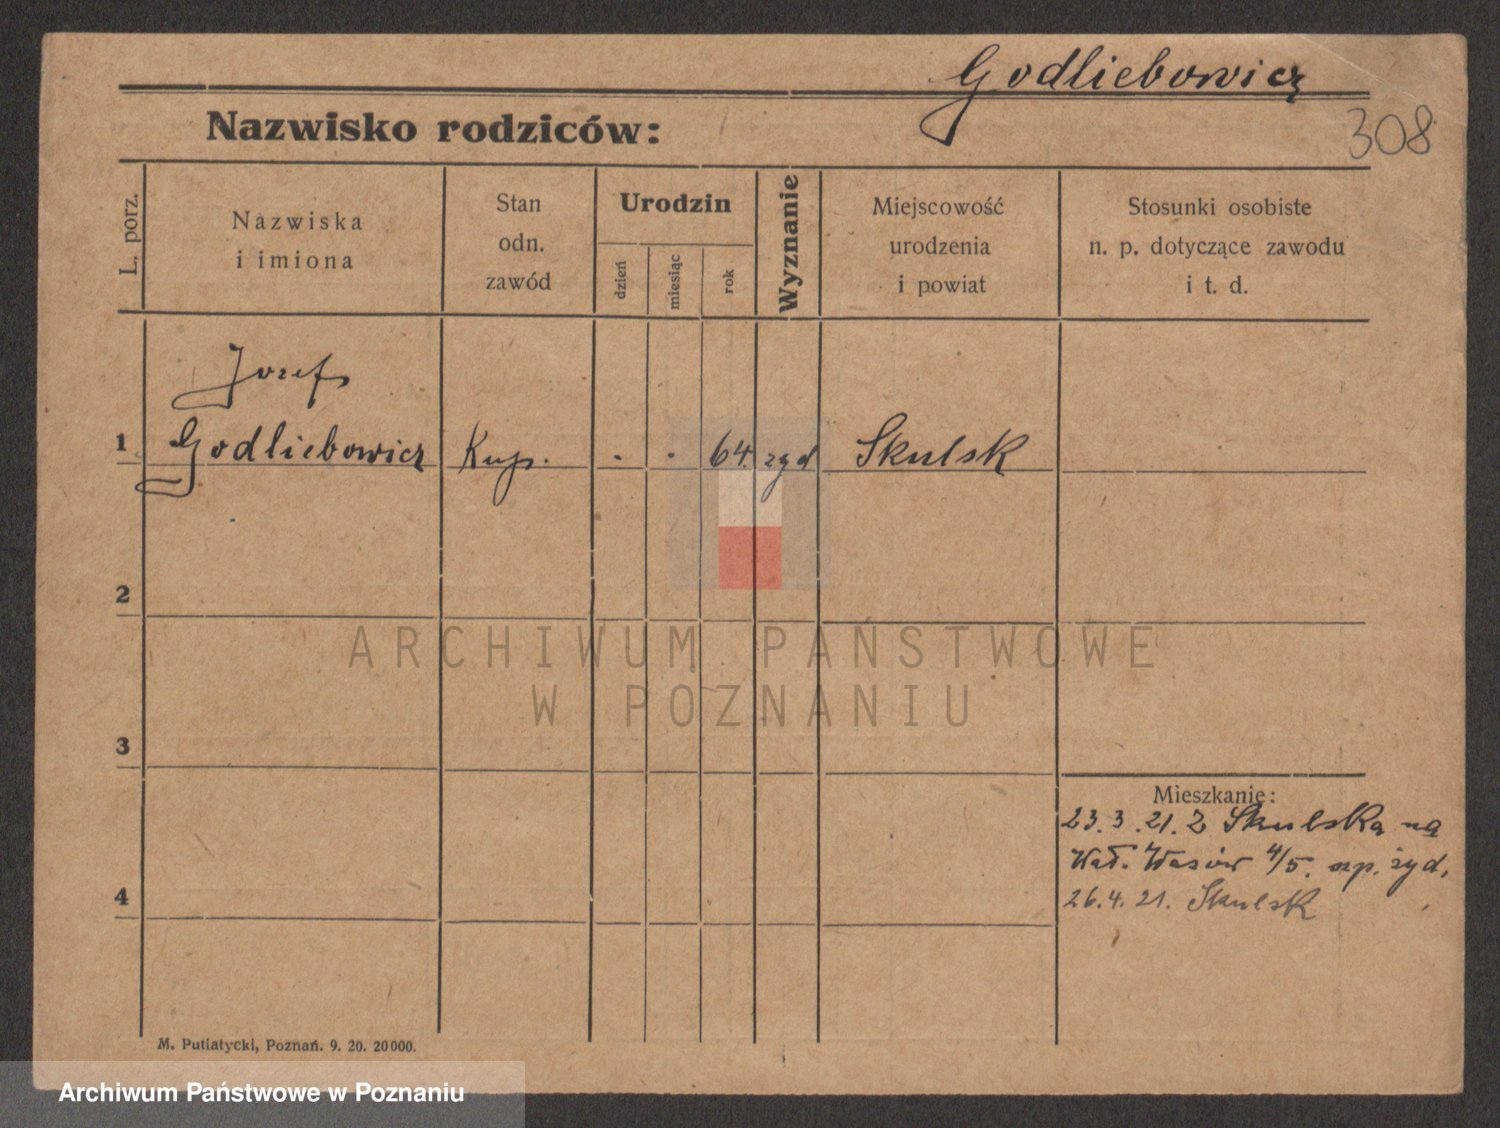 Godliebowicz
308
Nazwisko rodziców:
L. porz.
Nazwiska
i imiona
Stan
odn.
zawód
Urodzin
dzień
miesiąc
rok
Wyznanie
Miejscowość
urodzenia
i powiat
Stosunki osobiste
n. p. dotyczące zawodu
i t. d.
Jozef
1 Godliebowicz Kup. . . 64. zyd Skulsk
2
ARCHIWUM PAŃSTWOWE
W POZNANIU
3
Mieszkanie:
23.3.21. Z Skulska na
Wał. Wazów 4/5. szp. żyd.
4
26.4.21. Skulsk
M. Putiatycki, Poznań. 9. 20. 20000.
Archiwum Państwowe w Poznaniu